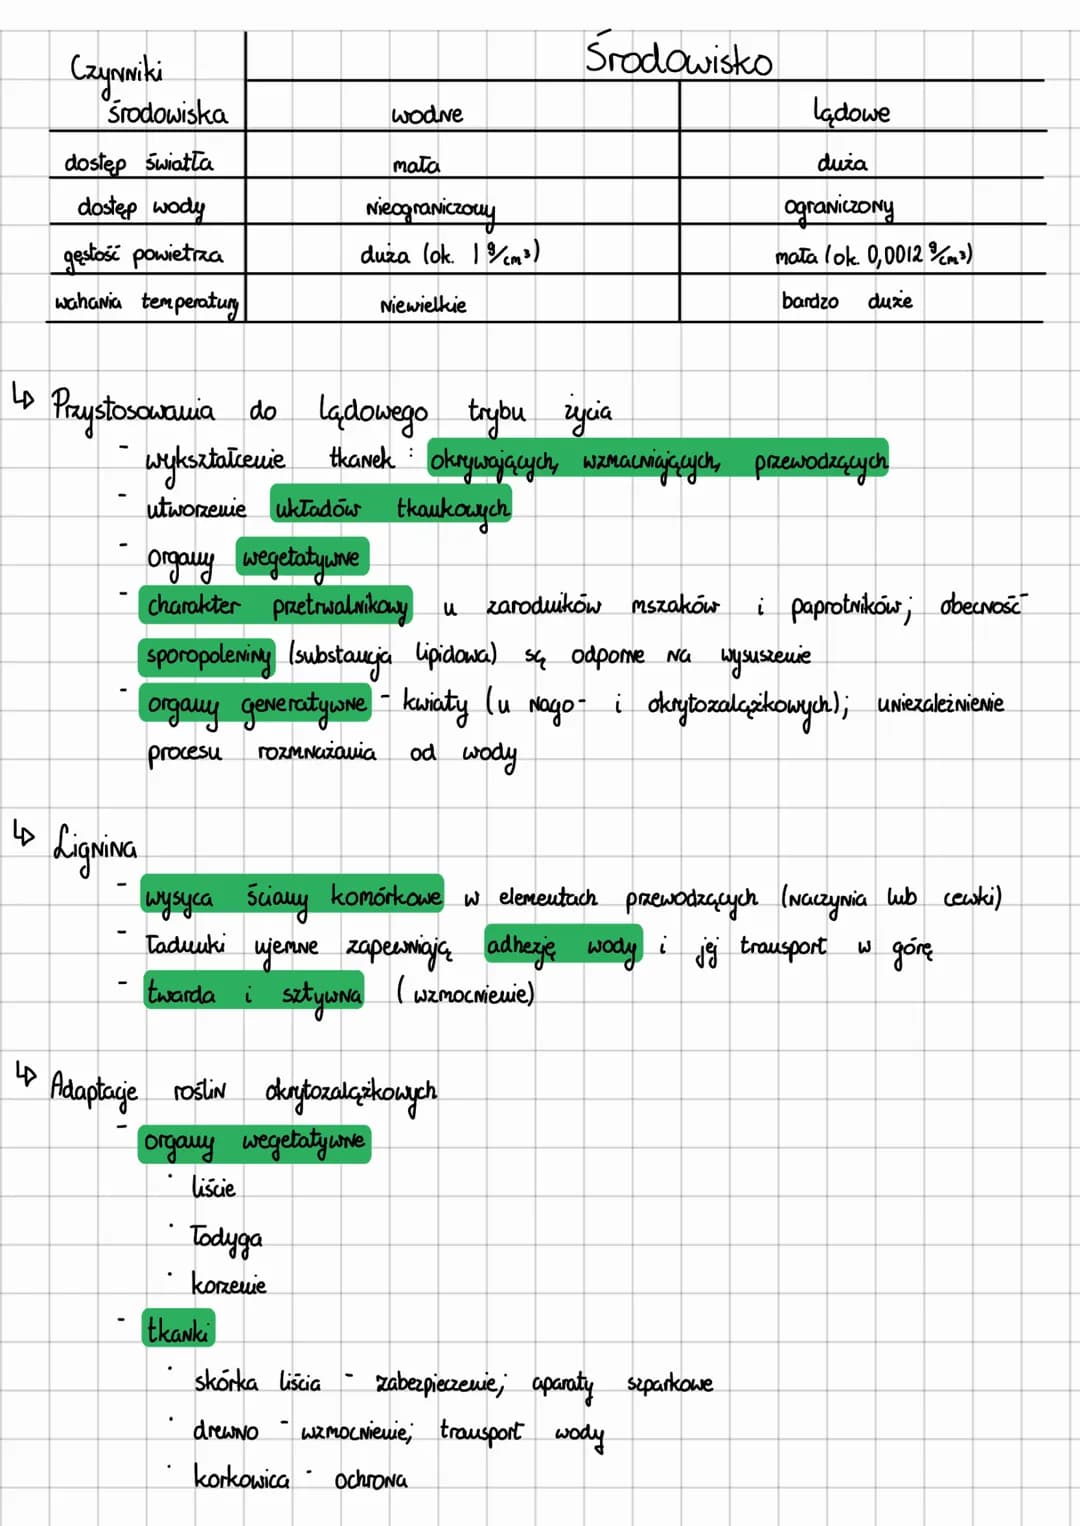 Środowisko
Czynniki
środowiska wodne lądowe
dostęp światła mała duża
dostęp wody nieograniczowy ograniczony
gęstość powietrza duża (ok. 1 g/cm³) mała (ok. 0,0012 g/cm³)
wahania temperatury niewielkie bardzo duże
↳ Przystosowania do lądowego trybu życia
- wykształcenie tkanek : okrywających, wzmacniających, przewodzących
- utworzenie układów tkankowych
- organy wegetatywne
- charakter przetrwalnikowy u zarodników mszaków i paprotników; obecność
sporopoleniny (substancja lipidowa) są odporne na wysuszenie
- organy generatywne - kwiaty (u nago- i okrytozalążkowych); uniezależnienie
procesu rozmnażania od wody
↳ Lignina
- wysyca ściany komórkowe w elementach przewodzących (naczynia lub cewki)
- ładunki ujemne zapewniają adhezję wody i jej transport w górę
- twarda i sztywna (wzmocnienie)
↳ Adaptacje roślin okrytozalążkowych
- organy wegetatywne
· liście
· łodyga
· korzenie
- tkanki
· skórka liścia - zabezpieczenie; aparaty szparkowe
· drewno - wzmocnienie; transport wody
· korkowica - ochrona